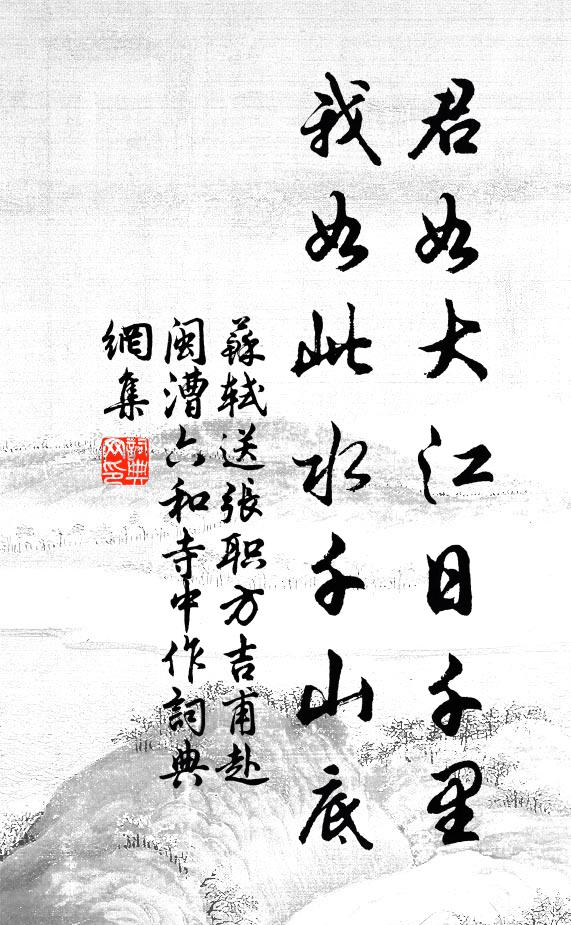 君如大江日千里
我如此水千山底
蘇軾送張职方吉甫赴
閩漕六和寺中作詞典
網集
詞典
网印